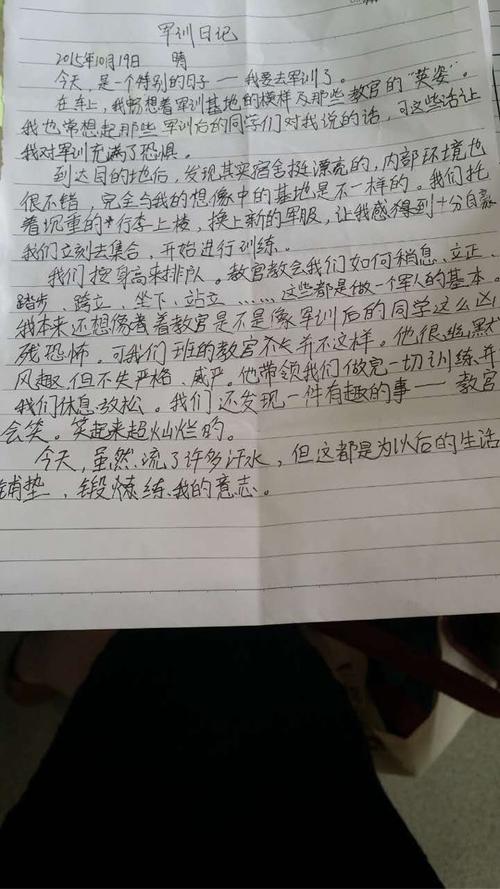 军训日记
2015年10月19日 晴
今天，是一个特别的日子——我要去军训了。
在车上，我畅想着军训基地的模样及那些教官的“英姿”。
我也常想起那些军训后的同学们对我说的话，可这些话让
我对军训充满了恐惧。
到达目的地后，发现其实宿舍挺漂亮的，内部环境也
很不错，完全与我的想像中的基地是不一样的。我们托
着沉重的行李上楼，换上新的军服，让我感得到十分自豪
我们立刻去集合，开始进行训练。
我们按身高来排队。教官教会我们如何稍息、立正、
踏步、跨立、坐下、站立……这些都是做一个军人的基本。
我本来还想像者着教官是不是像军训后的同学这么凶
残恐怖。可我们班的教官不并不这样。他很幽默
风趣但不失严格、威严。他带领我们做完一切训练并
我们休息放松。我们还发现一件有趣的事——教官
会笑。笑起来超灿烂的。
今天，虽然流了许多汗水，但这都是为以后的生活
铺垫，锻炼练我的意志。